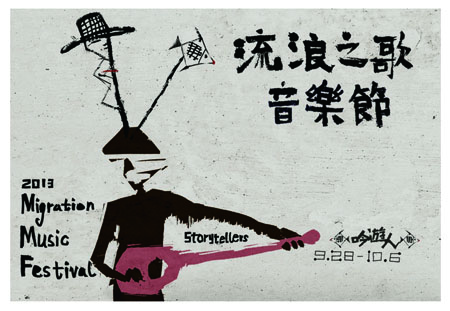 流浪之歌
音樂節
2013
Migration
Music
Festival
Storytellers
吟遊人
9.28-10.6